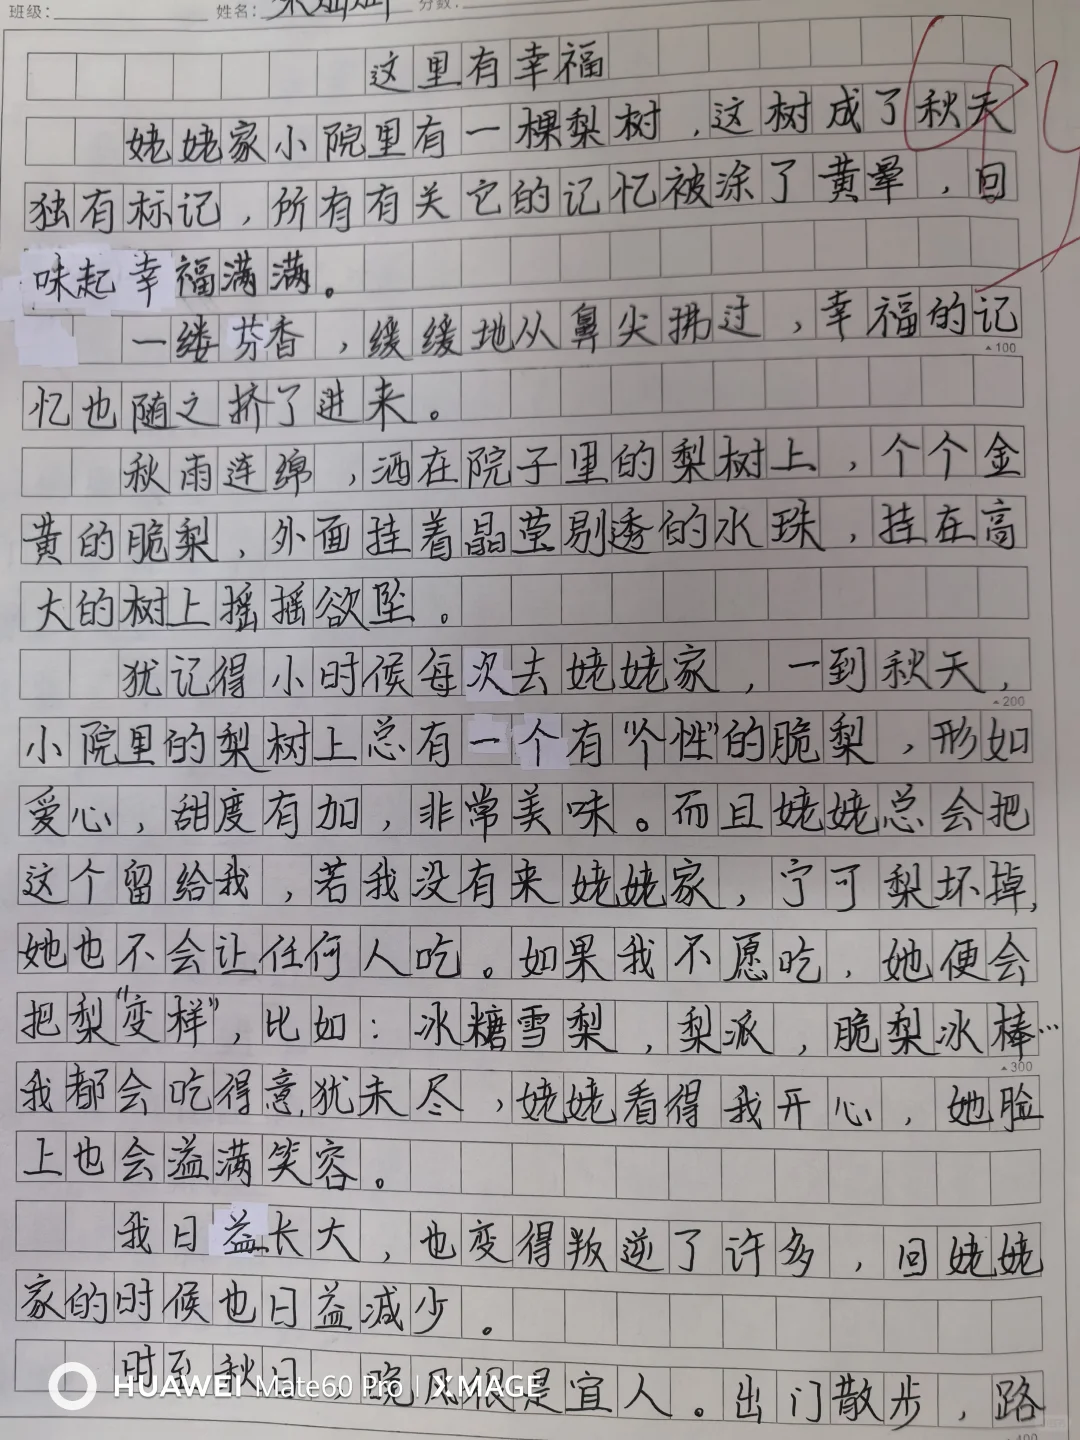 班级： 姓名： 分数：
这里有幸福
姥姥家小院里有一棵梨树，这树成了秋天
独有标记，所有有关它的记忆被涂了黄晕，回
味起幸福满满。
一缕芬香，缓缓地从鼻尖拂过，幸福的记
100
忆也随之挤了进来。
秋雨连绵，洒在院子里的梨树上，个个金
黄的脆梨，外面挂着晶莹剔透的水珠，挂在高
大的树上摇摇欲坠。
犹记得小时候每次去姥姥家，一到秋天，
200
小院里的梨树上总有一个有“个性”的脆梨，形如
爱心，甜度有加，非常美味。而且姥姥总会把
这个留给我，若我没有来姥姥家，宁可梨坏掉，
她也不会让任何人吃。如果我不愿吃，她便会
把梨“变样”，比如：冰糖雪梨，梨派，脆梨冰棒…
300
我都会吃得意犹未尽，姥姥看得我开心，她脸
上也会溢满笑容。
我日益长大，也变得叛逆了许多，回姥姥
家的时候也日益减少。
时至秋日，晚风很是宜人。出门散步，路
HUAWEI Mate60 Pro | XMAGE
400